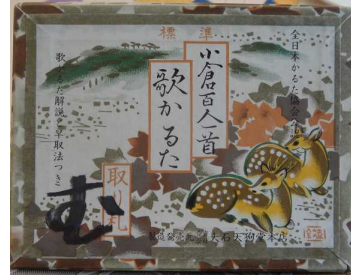 標準
小倉百人一首
歌かるた
全日本かるた協会
歌かるた解説と早取法つき
取り札
む
大石天狗堂